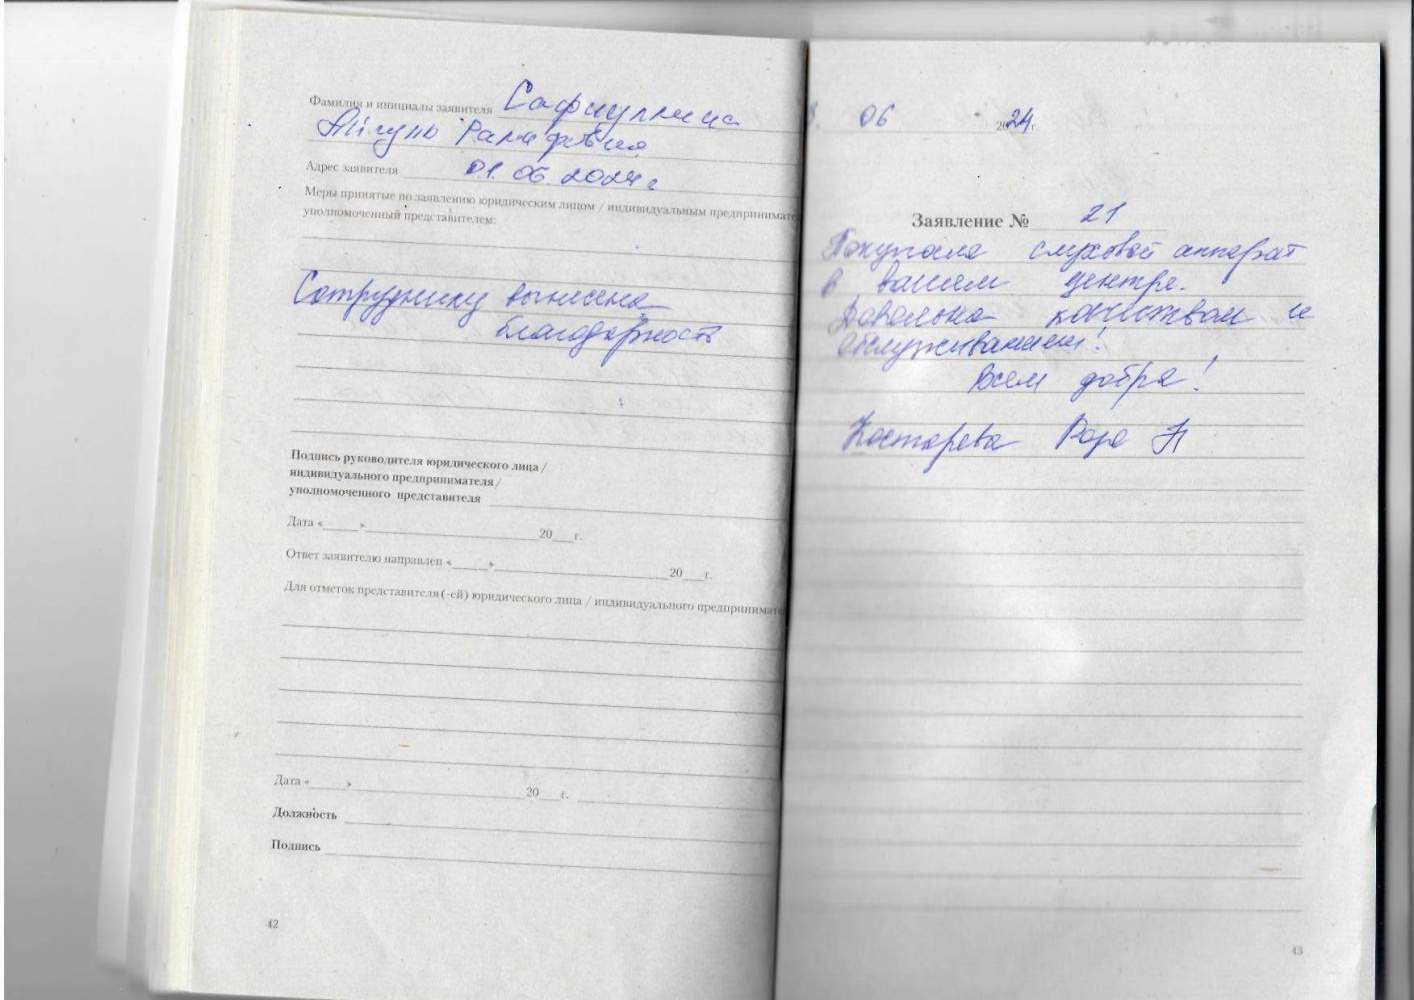 Фамилия и инициалы заявителя Сафиуллина
Айгуль
Адрес заявителя 01.06.2024 г
Меры принятые по заявлению юридическим лицом / индивидуальным предпринимате
уполномоченный представителем:
Сотруднику вынесена
благодарность
Подпись руководителя юридического лица /
индивидуального предпринимателя /
уполномоченного представителя
Дата «_____»__________ 20___г.
Ответ заявителю направлен «_____»__________ 20___г.
Для отметок представителя (-ей) юридического лица / индивидуального предпринимате
Дата «_____»__________ 20___г.
Должность
Подпись
42
06 2024г.
Заявление № 21
Покупала слуховой аппарат
в вашем центре.
Довольна качеством и
обслуживанием!
Всем добра!
Костарева
43